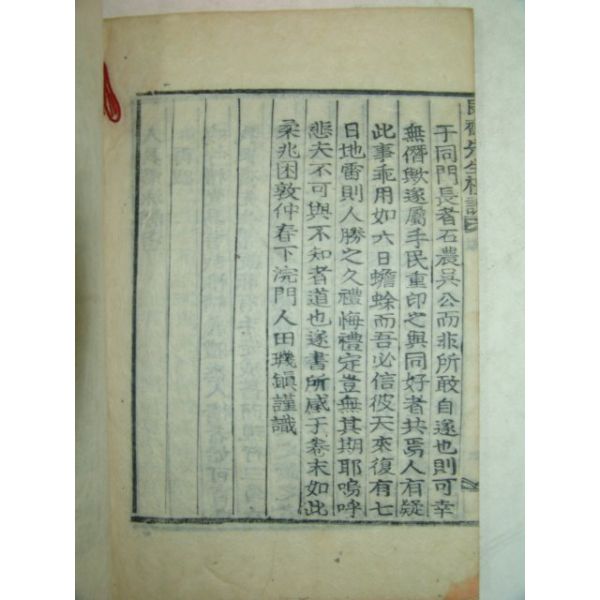 于同門長者石農吳公而非所敢自遂也則可幸
無僭歟遂屬手民重印之與同好者共焉人有疑
此事乖用如六日蟾蜍而吾必信彼天來復有七
日地雷則人勝之久禮悔禮定豈無其期耶嗚呼
悲夫不可與不知者道也遂書所感于卷末如此
柔兆困敦仲春下浣門人田璣鎭謹識